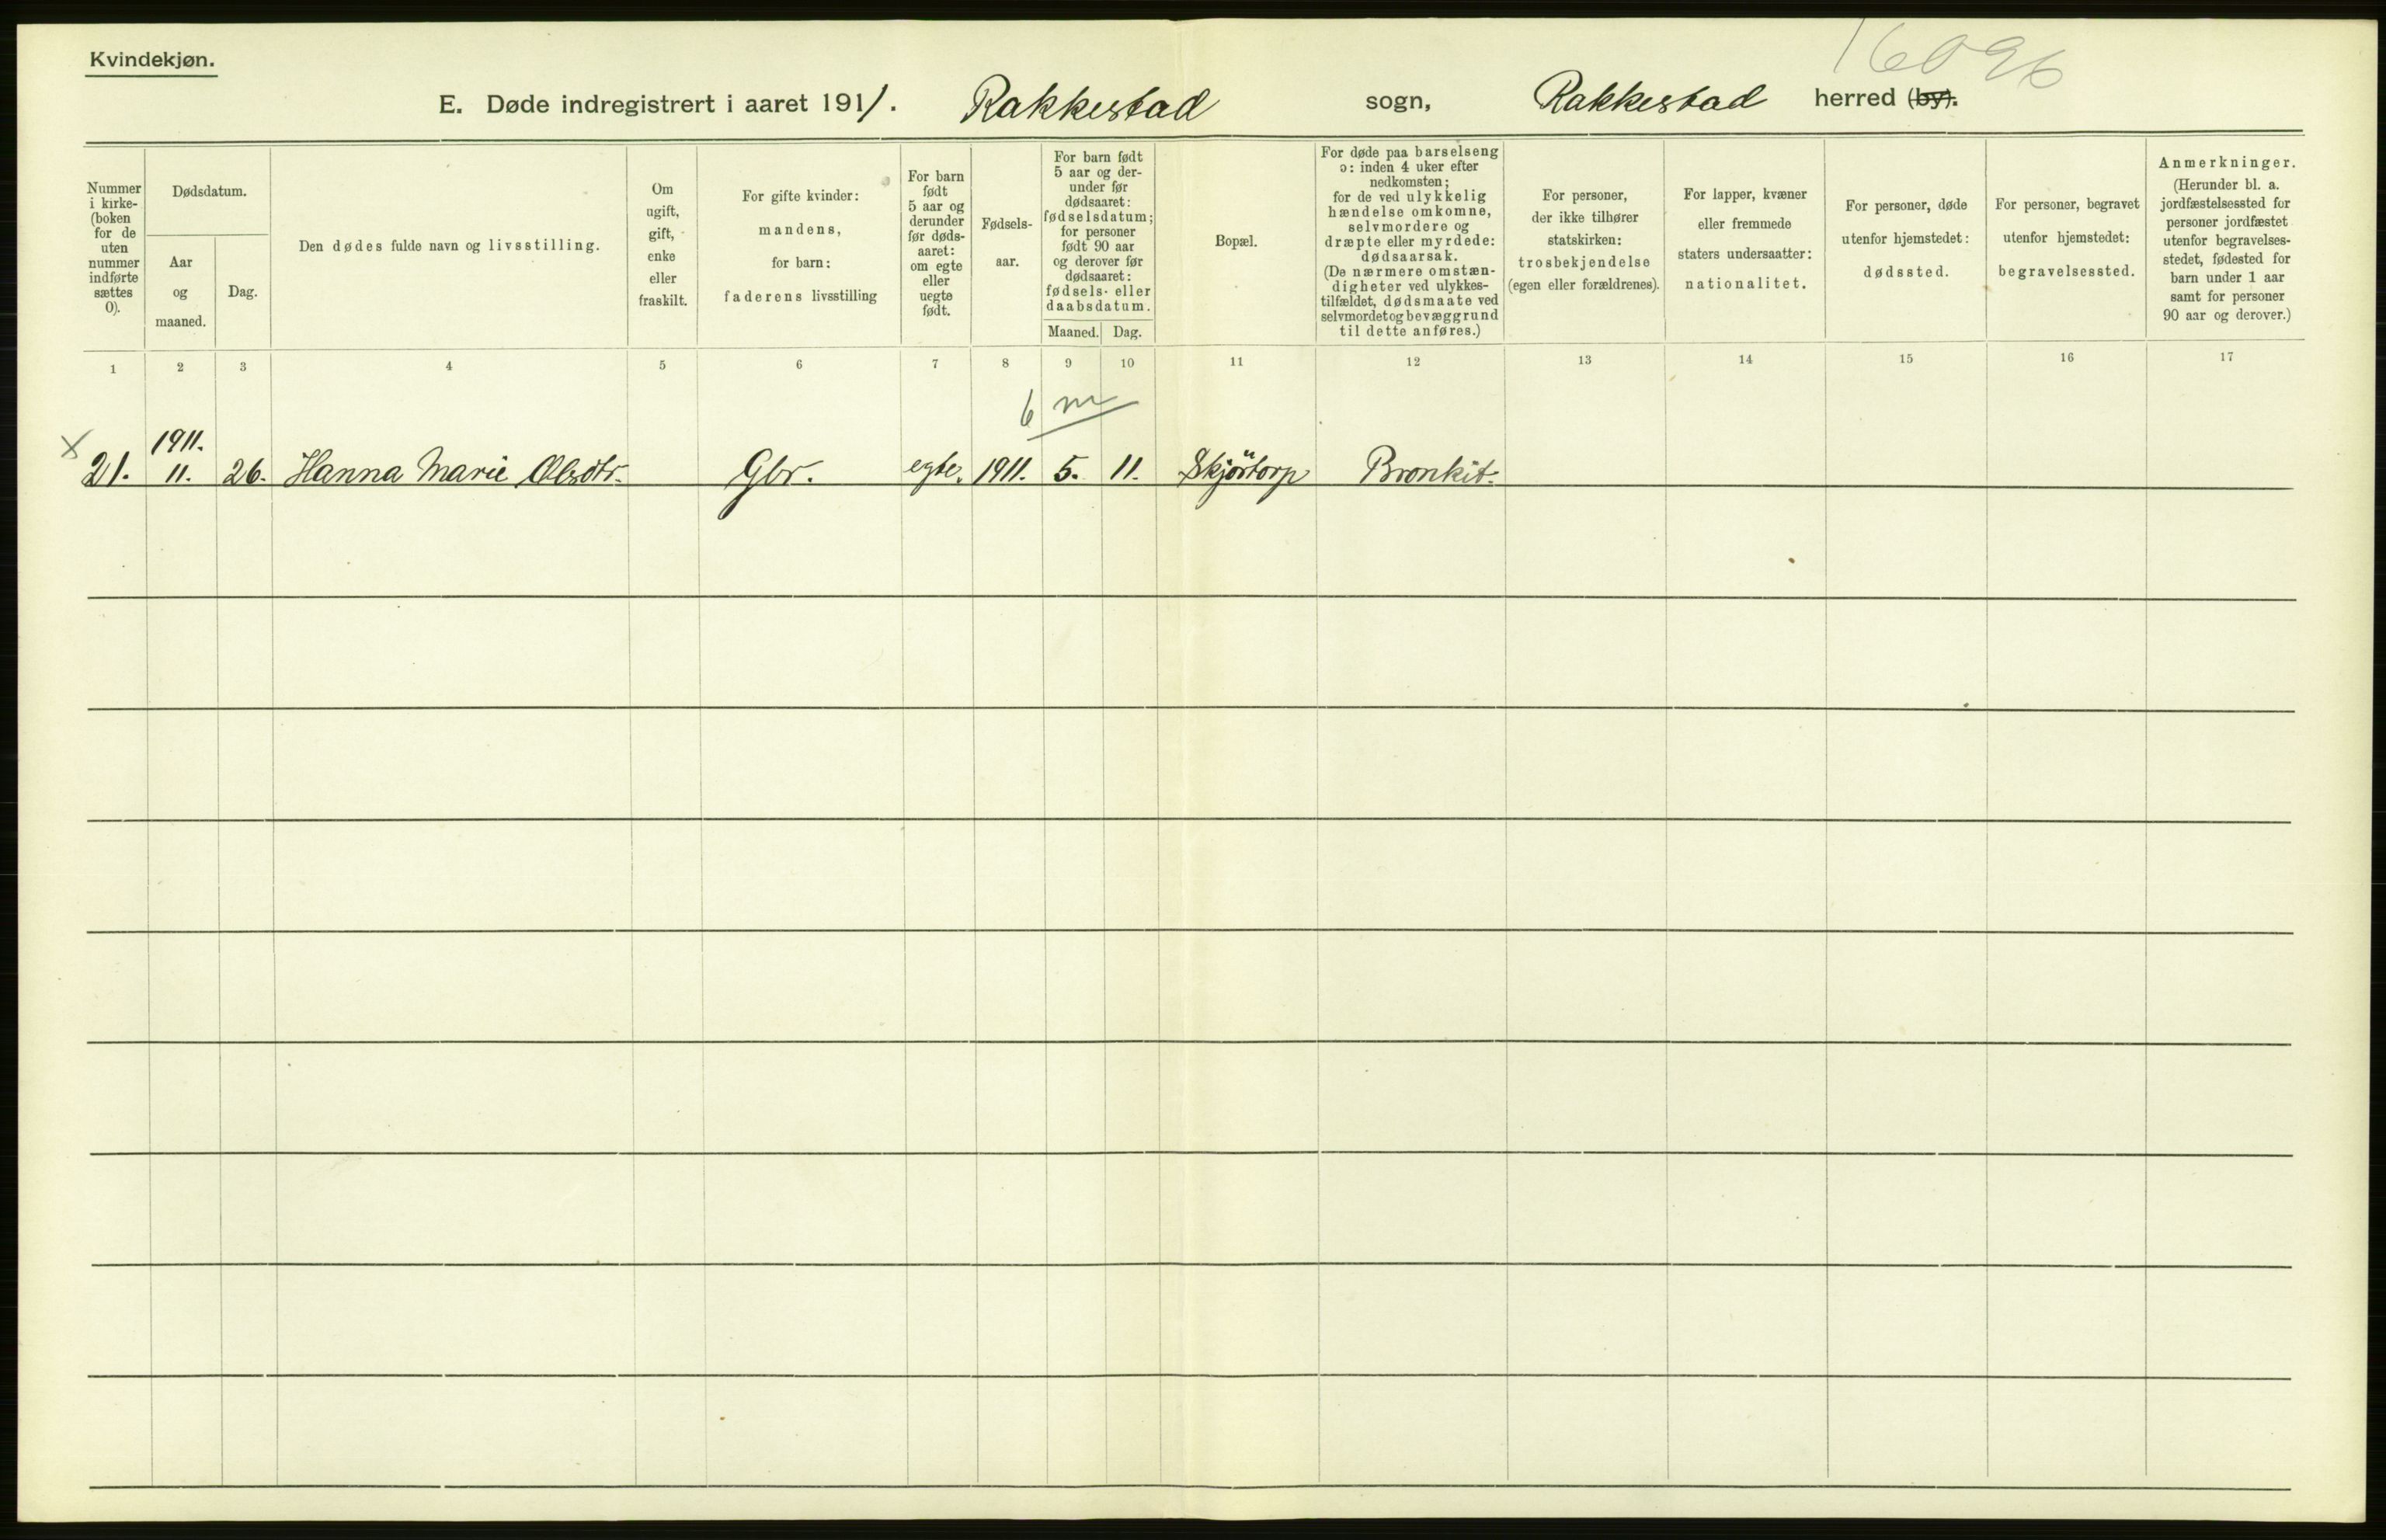 Kvindekjøn.
16096
E. Døde indregistrert i aaret 1911. Rakkestad sogn, Rakkestad herred (by).
Nummer
i kirke-
(boken
for de
uten
nummer
indførte
sættes
0).
Dødsdatum.
Aar
og
maaned.
Dag.
Den dødes fulde navn og livsstilling.
Om
ugift,
gift,
enke
eller
fraskilt.
For gifte kvinder:
mandens,
for barn:
faderens livsstilling
For barn
født
5 aar og
derunder
før døds-
aaret:
om egte
eller
uegte
født.
Fødsels-
aar.
For barn født
5 aar og der-
under før
dødsaaret:
fødselsdatum;
for personer
født 90 aar
og derover før
dødsaaret:
fødsels- eller
daabsdatum.
Maaned. Dag.
Bopæl.
For døde paa barselseng
ɔ: inden 4 uker efter
nedkomsten;
for de ved ulykkelig
hændelse omkomne,
selvmordere og
dræpte eller myrdede:
dødsaarsak.
(De nærmere omstæn-
digheter ved ulykkes-
tilfældet, dødsmaate ved
selvmordet og bevæggrund
til dette anføres.)
For personer,
der ikke tilhører
statskirken:
trosbekjendelse
(egen eller forældrenes).
For lapper, kvæner
eller fremmede
staters undersaatter:
nationalitet.
For personer, døde
utenfor hjemstedet:
dødssted.
For personer, begravet
utenfor hjemstedet:
begravelsessted.
Anmerkninger.
(Herunder bl. a.
jordfæstelsessted for
personer jordfæstet
utenfor begravelses-
stedet, fødested for
barn under 1 aar
samt for personer
90 aar og derover.)
1 2 3 4 5 6 7 8 9 10 11 12 13 14 15 16 17
6 m
x 1911.
21. 11. 26. Hanna Marie Olsdtr. Gbr. egte. 1911. 5. 11. Skjörtorp Bronkit.